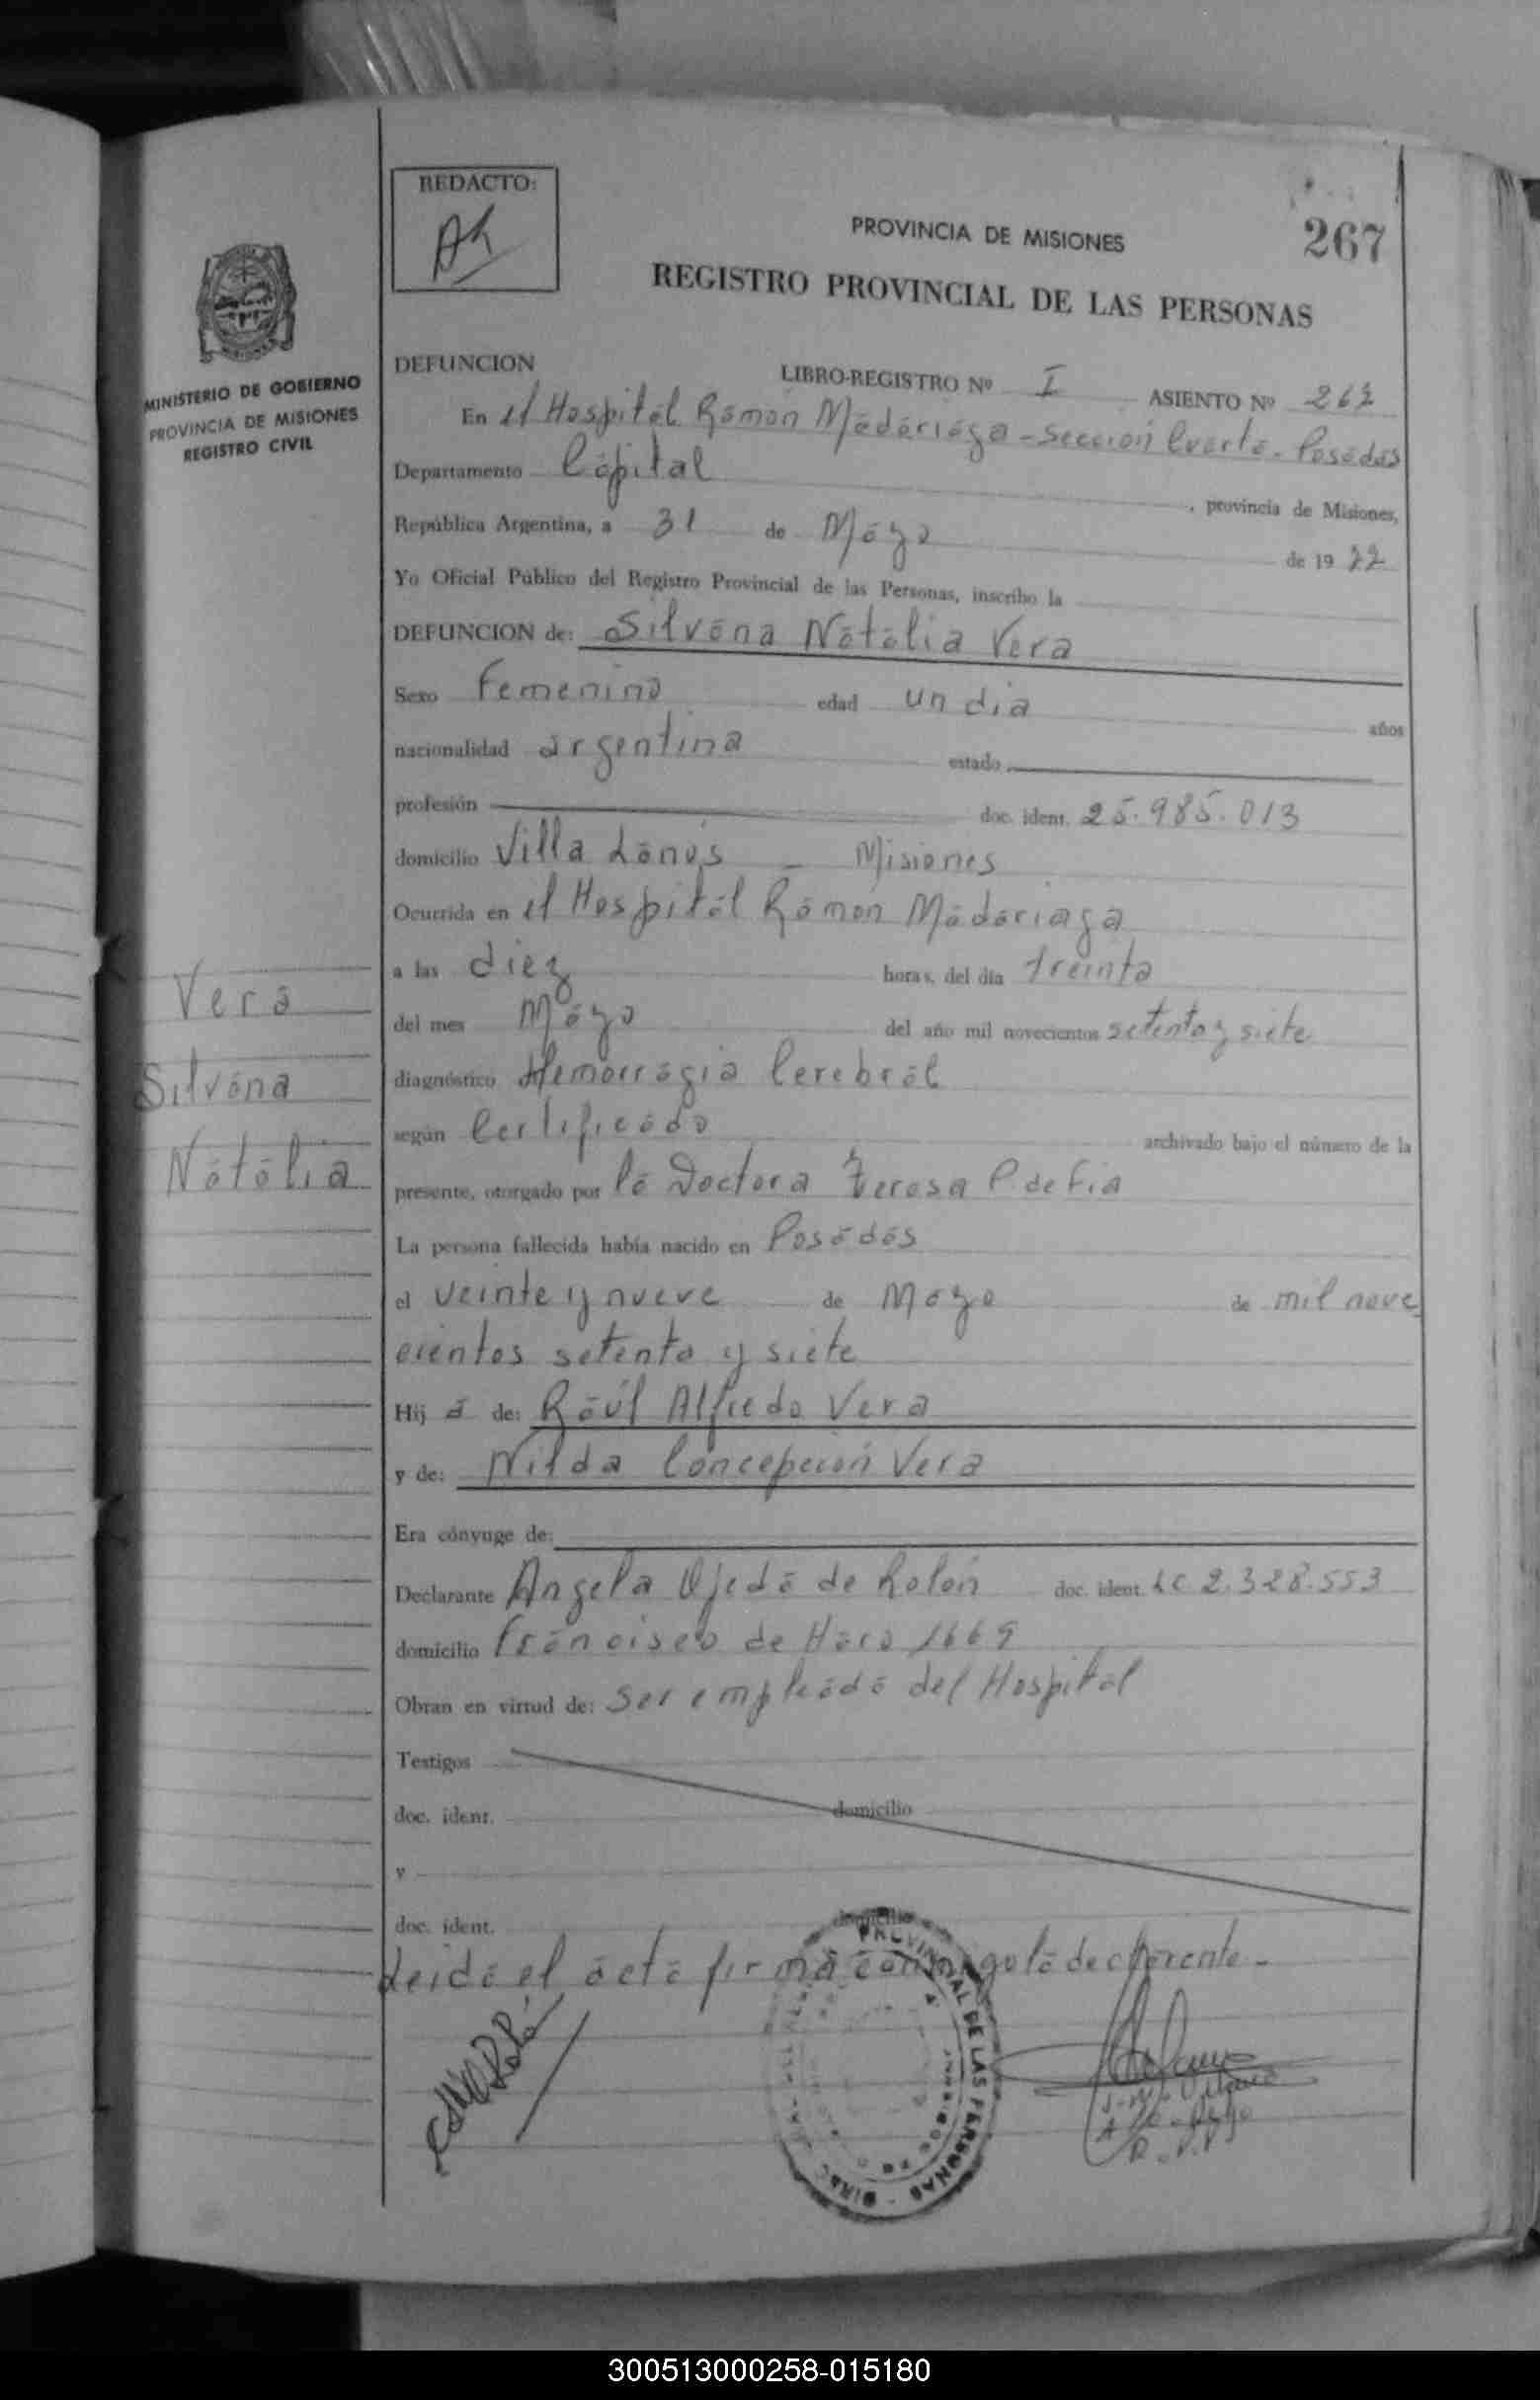 REDACTO:
PROVINCIA DE MISIONES
267
REGISTRO PROVINCIAL DE LAS PERSONAS
MINISTERIO DE GOBIERNO
PROVINCIA DE MISIONES
REGISTRO CIVIL
DEFUNCION LIBRO-REGISTRO Nº I ASIENTO Nº 267
En el Hospital Ramón Madariaga - Sección Cuarta - Posadas
Departamento Capital, provincia de Misiones,
República Argentina, a 31 de Mayo de 1977
Yo Oficial Público del Registro Provincial de las Personas, inscribo la
DEFUNCION de: Silvana Natalia Vera
Sexo Femenino edad un dia años
nacionalidad argentina estado
profesión doc. ident. 25.985.013
domicilio Villa Lanús - Misiones
Ocurrida en el Hospital Ramón Madariaga
a las diez horas, del día treinta
del mes Mayo del año mil novecientos setenta y siete
diagnóstico Hemorragia Cerebral
según Certificado archivado bajo el número de la
presente, otorgado por la Doctora Teresa P. de Fia
La persona fallecida había nacido en Posadas
el veinte y nueve de Mayo de mil nove
cientos setenta y siete
Hij a de: Raúl Alfredo Vera
y de: Nilda Concepción Vera
Era cónyuge de:
Declarante Angela Ojeda de Rolón doc. ident. LC 2.328.553
domicilio Francisco de Haro 1669
Obran en virtud de: ser empleada del Hospital
Testigos
doc. ident. domicilio
y
doc. ident. domicilio
Leida el acta firma conmigo la declarante.-
Vera
Silvana
Natalia
PROVINCIAL DE LAS PERSONAS
300513000258-015180